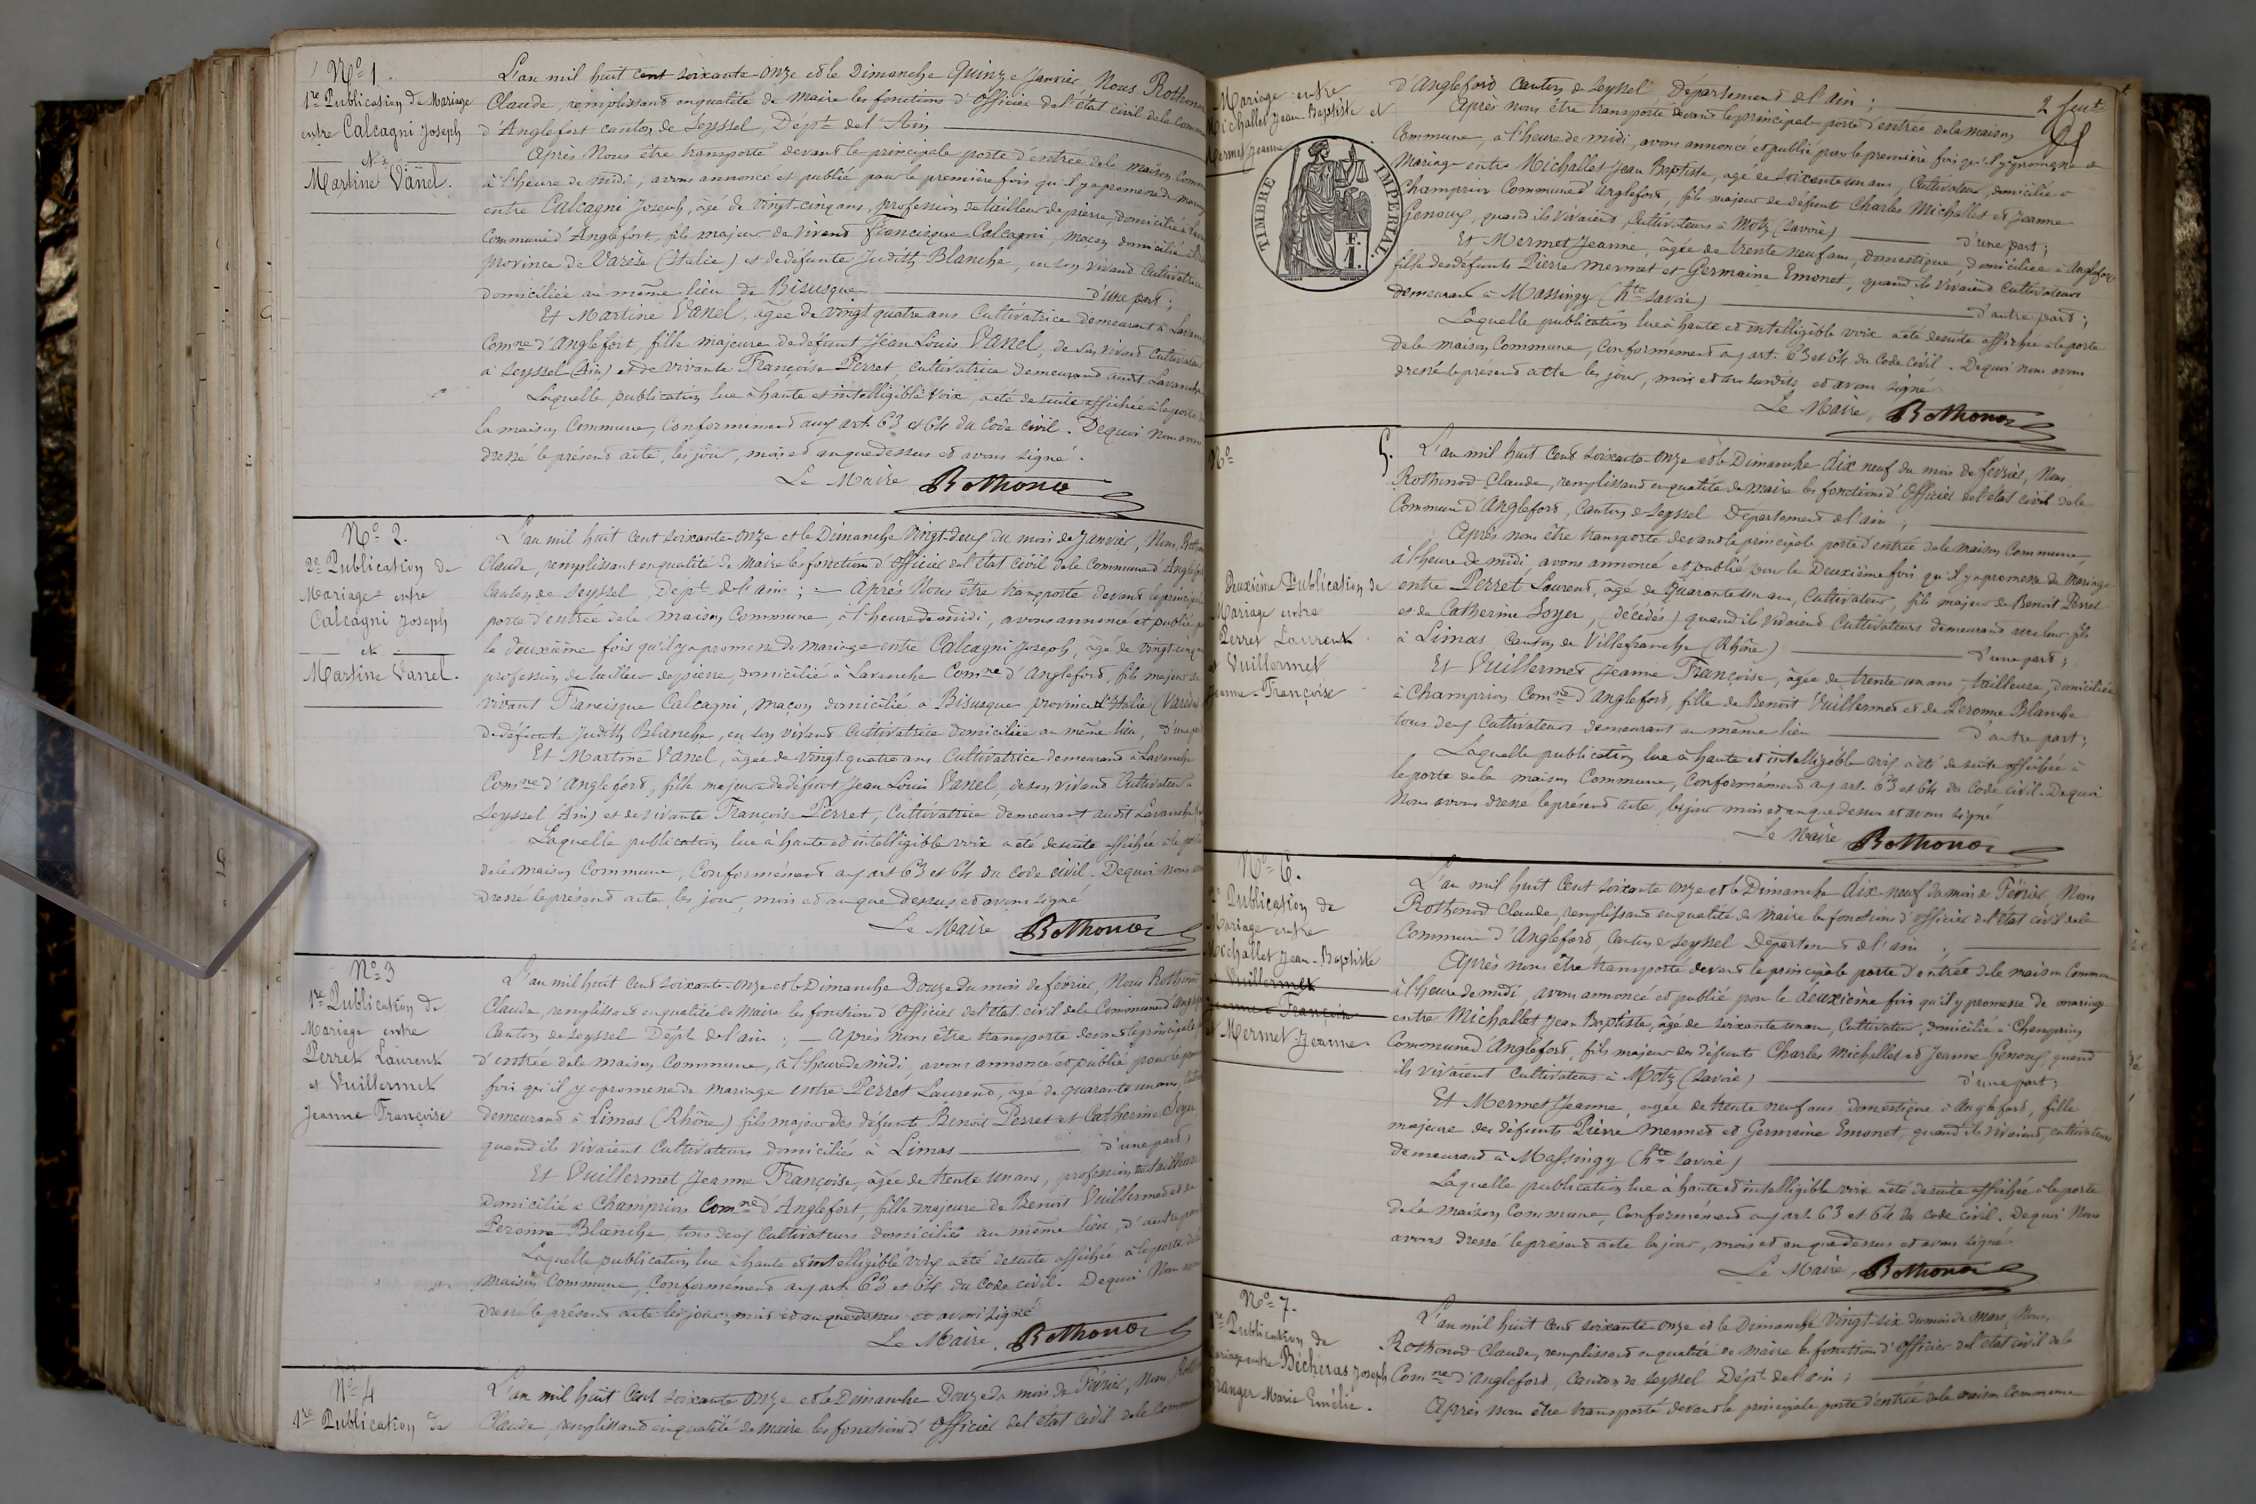 Nº 1.
1re Publication de Mariage
entre Calcagni Joseph
&
Martine Vanel.
L'an mil huit cent soixante-onze et le Dimanche Quinze Janvier, Nous Rothonod
Claude, remplissant en qualité de Maire les fonctions d'Officier de l'état civil de la Commune
d'Anglefort canton de Seyssel, Dépt de l'Ain
Après Nous être transporté devant la principale porte d'entrée de la maison Commune
à l'heure de midi, avons annoncé et publié pour la première fois qu'il y a promesse de mariage
entre Calcagni Joseph, âgé de vingt-cinq ans, profession de tailleur de pierre, domicilié à
Commune d'Anglefort, fils majeur de vivant Francisque Calcagni, maçon domicilié à
province de Varèse (Italie) et de défunte Judith Blanche, en son vivant Cultivatrice
domiciliée au même lieu de Bisusque d'une part;
Et Martine Vanel, âgée de vingt quatre ans Cultivatrice demeurant à Lavanche
Comne d'Anglefort, fille majeure de défunt Jean Louis Vanel, de son vivant Cultivateur
à Seyssel (Ain) et de vivante Françoise Perret, Cultivatrice demeurant audit Lavanche
Laquelle publication lue à haute et intelligible voix, a été de suite affichée à la porte de
la maison Commune, Conformément aux art. 63 et 64 du Code civil. De quoi nous avons
dressé le présent acte, les jour, mois et an que dessus et avons signé.
Le Maire Rothonod
Nº 2.
2e Publication de
Mariage entre
Calcagni Joseph
et
Martine Vanel.
L'an mil huit cent soixante-onze et le Dimanche vingt-deux du mois de Janvier, Nous, Rothonod
Claude, remplissant en qualité de Maire les fonctions d'Officier de l'état civil de la Commune d'Anglefort
Canton de Seyssel, Dépt de l'ain; — Après Nous être transporté devant la principale
porte d'entrée de la maison Commune, à l'heure de midi, avons annoncé et publié pour
la deuxième fois qu'il y a promesse de mariage entre Calcagni Joseph, âgé de vingt-cinq ans
profession de tailleur de pierre, domicilié à Lavanche Comne d'Anglefort, fils majeur de
vivant Francisque Calcagni, maçon domicilié à Bisusque province d'Italie (Varèse)
de défunte Judith Blanche, en son vivant Cultivatrice domiciliée au même lieu, d'une part
Et Martine Vanel, âgée de vingt quatre ans Cultivatrice demeurant à Lavanche
Comne d'Anglefort, fille majeure de défunt Jean Louis Vanel, de son vivant Cultivateur à
Seyssel (Ain) et de vivante Françoise Perret, Cultivatrice demeurant audit Lavanche
Laquelle publication lue à haute et intelligible voix a été de suite affichée à la porte
de la maison Commune, Conformément aux art 63 et 64 du Code civil. De quoi nous avons
dressé le présent acte, les jour, mois et an que dessus, et avons signé
Le Maire Rothonod
Nº 3
1re Publication de
Mariage entre
Perret Laurent
et Vuillermet
Jeanne Françoise
L'an mil huit Cent soixante-onze et le Dimanche Douze du mois de février, Nous Rothonod
Claude, remplissant en qualité de Maire les fonctions d'Officier de l'état civil de la Commune d'Anglefort
Canton de Seyssel Dépt de l'ain; — Après Nous être transporté devant la principale
d'entrée de la maison Commune, à l'heure de midi, avons annoncé et publié pour la première
fois qu'il y a promesse de mariage entre Perret Laurent, âgé de quarante un ans,
demeurant à Limas (Rhône) fils majeur des défunts Benoit Perret et Catherine Soyer
quand ils vivaient Cultivateurs domiciliés à Limas d'une part;
Et Vuillermet Jeanne Françoise, âgée de trente un ans, profession de tailleuse
domiciliée à Champrion Comne d'Anglefort, fille majeure de Benoit Vuillermet et de
Peronne Blanche, tous deux Cultivateurs domiciliés au même lieu, d'autre part
Laquelle publication lue à haute et intelligible voix a été de suite affichée à la porte de la
maison Commune, Conformément aux art. 63 et 64 du Code civil. De quoi Nous avons
dressé le présent acte les jour, mois et an que dessus et avons signé
Le Maire. Rothonod
Nº 4
1re Publication de
L'an mil huit Cent soixante onze et le Dimanche Douze du mois de Février, Nous Rothonod
Claude, remplissant en qualité de maire les fonctions d'Officier de l'état civil de la Commune
Mariage entre
Michallet Jean-Baptiste et
Mermet Jeanne
TIMBRE IMPERIAL.
F.
1.
2 feuet
d'Anglefort Canton de Seyssel, Département de l'ain;
Après nous être transporté devant la principale porte d'entrée de la maison
Commune, à l'heure de midi, avons annoncé et publié pour la première fois qu'il y a promesse de
Mariage entre Michallet Jean Baptiste, âgé de soixante un ans, Cultivateur, domicilié à
Champrion Commune d'Anglefort, fils majeur de défunts Charles Michallet et Jeanne
Genoux, quand ils vivaient, Cultivateurs à Motz (Savoie) d'une part;
Et Mermet Jeanne, âgée de trente neuf ans, domestique, domiciliée à Anglefort
fille des défunts Pierre Mermet et Germaine Emonet, quand ils vivaient cultivateurs
demeurant à Massingy (hte Savoie) d'autre part;
Laquelle publication lue à haute et intelligible voix a été de suite affichée à la porte
de la maison Commune, Conformément aux art. 63 et 64 du Code civil. De quoi nous avons
dressé le présent acte les jour, mois et an susdits, et avons signé.
Le Maire, Rothonod
Nº 5.
Deuxième Publication de
Mariage entre
Perret Laurent
et Vuillermet
Jeanne-Françoise
L'an mil huit Cent soixante-onze et le Dimanche dix neuf du mois de février, Nous
Rothonod Claude, remplissant en qualité de maire les fonctions d'Officier de l'état civil de la
Commune d'Anglefort, Canton de Seyssel Département de l'ain;
Après nous être transporté devant la principale porte d'entrée de la maison Commune,
à l'heure de midi, avons annoncé et publié pour la Deuxième fois qu'il y a promesse de Mariage
entre Perret Laurent, âgé de Quarante un ans, Cultivateur, fils majeur de Benoit Perret
et de Catherine Soyer, (décédés) quand ils vivaient Cultivateurs demeurant avec leur fils
à Limas, Canton de Villefranche (Rhône) d'une part;
Et Vuillermet Jeanne Françoise, âgée de trente un ans, tailleuse, domiciliée
à Champrion Comne d'Anglefort, fille de Benoit Vuillermet et de Peronne Blanche
tous deux Cultivateurs demeurant au même lieu d'autre part;
Laquelle publication lue à haute et intelligible voix a été de suite affichée à
la porte de la maison Commune, Conformément aux art. 63 et 64 du Code civil. De quoi
Nous avons dressé le présent acte, les jour mois et an que dessus et avons signé
Le Maire Rothonod
Nº 6.
2e Publication de
Mariage entre
Michallet Jean-Baptiste
et Vuillermet
Jeanne Françoise
et Mermet Jeanne.
L'an mil huit Cent soixante onze et le Dimanche dix-neuf du mois de Février, Nous
Rothonod Claude, remplissant en qualité de Maire les fonctions d'officier de l'état civil de la
Commune d'Anglefort, Canton de Seyssel Département de l'ain;
Après nous être transporté devant la principale porte d'entrée de la maison Commune
à l'heure de midi, avons annoncé et publié pour la deuxième fois qu'il y promesse de mariage
entre Michallet Jean Baptiste, âgé de soixante un an, Cultivateur, domicilié à Champrion
Commune d'Anglefort, fils majeur des défunts Charles Michallet et Jeanne Genoux, quand
ils vivaient Cultivateurs à Motz (Savoie) d'une part;
Et Mermet Jeanne, âgée de trente neuf ans, domestique à Anglefort, fille
majeure des défunts Pierre Mermet et Germaine Emonet, quand ils vivaient, cultivateurs
demeurant à Massingy (hte Savoie)
Laquelle publication lue à haute et intelligible voix a été de suite affichée à la porte
de la Maison Commune, Conformément aux art. 63 et 64 du Code civil. De quoi Nous
avons dressé le présent acte les jour, mois et an que dessus et avons signé.
Le Maire, Rothonod
Nº 7.
1re Publication de
mariage entre Bécheras Joseph
Granger Marie Emélie.
L'an mil huit Cent soixante-onze et le Dimanche Vingt-six du mois de Mars, Nous,
Rothonod Claude, remplissant en qualité de maire les fonctions d'officier de l'état civil de la
Comne d'Anglefort, Canton de Seyssel Dépt de l'ain;
Après nous être transporté devant la principale porte d'entrée de la maison Commune